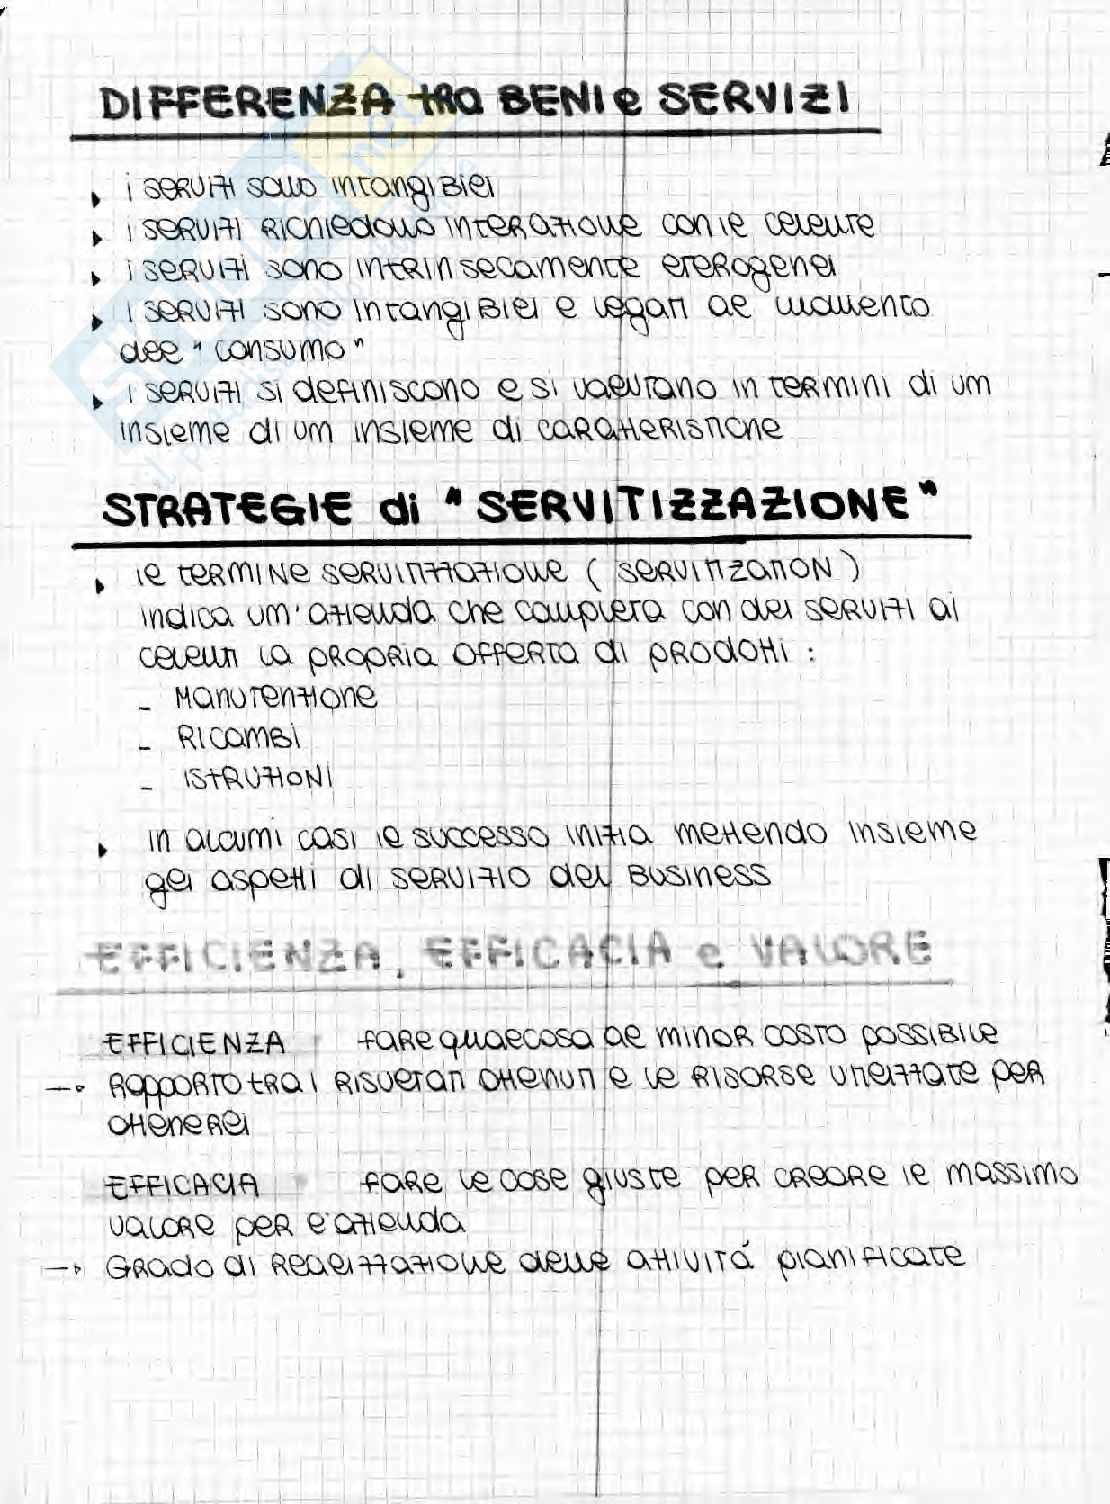 DIFFERENZA tra BENI e SERVIZI
i servizi sono intangibili
i servizi richiedono interazione con il cliente
i servizi sono intrinsecamente eterogenei
i servizi sono intangibili e legati al momento
del "consumo"
i servizi si definiscono e si valutano in termini di un
insieme di un insieme di caratteristiche
STRATEGIE di "SERVITIZZAZIONE"
il termine servitizzazione (servitization)
indica un'azienda che completa con dei servizi ai
clienti la propria offerta di prodotti:
- Manutenzione
- Ricambi
- Istruzioni
in alcuni casi il successo inizia mettendo insieme
gli aspetti di servizio del business
EFFICIENZA, EFFICACIA e VALORE
EFFICIENZA fare qualcosa al minor costo possibile
→ Rapporto tra i risultati ottenuti e le risorse utilizzate per
ottenerli
EFFICACIA fare le cose giuste per creare il massimo
valore per l'azienda
→ Grado di realizzazione delle attività pianificate